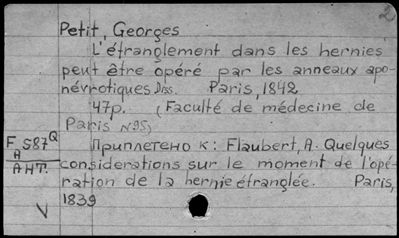 2
Petit, Georges
L'étranglement dans les hernies
peut être opéré par les anneaux apo-
névrotiques Diss. Paris, 1842
47p. (Faculté de médecine de
Paris N95)
F 587Q
A
AHT.
Приплетено к: Flaubert, A. Quelques
considerations sur le moment de l'opé-
ration de la hernie étranglée. Paris,
1839
V